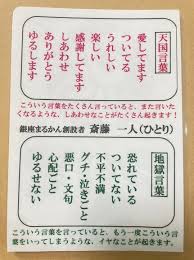 天国言葉
愛してます
ついてる
うれしい
楽しい
感謝してます
しあわせ
ありがとう
ゆるします
こういう言葉をたくさん言っていると、また言いた
くなるような、しあわせなことがたくさん起きます！
銀座まるかん創設者 斎藤一人（ひとり）
地獄言葉
恐れている
ついてない
不平不満
グチ・泣きごと
悪口・文句
心配ごと
ゆるせない
こういう言葉を言っていると、もう一度こういう言
葉をいってしまうような、イヤなことが起きます。